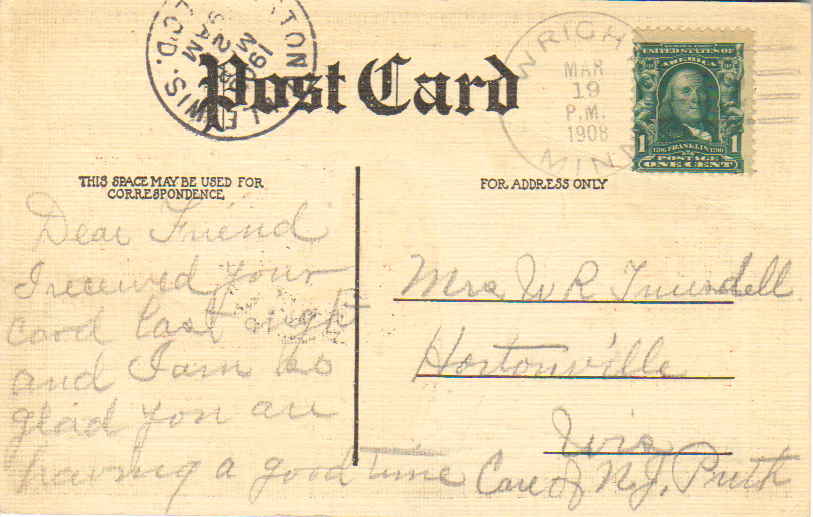 TON
MAR 2
1908
5 AM
WIS.
REC'D.
Post Card
WRIGHT
MAR
19
P.M.
1908
MINN
UNITED STATES OF
AMERICA
1 FRANKLIN 1
POSTAGE
ONE CENT
THIS SPACE MAY BE USED FOR
CORRESPONDENCE
FOR ADDRESS ONLY
Dear Friend
I received your
card last night
and I am so
glad you are
having a good time
Mrs W R
Hortonville
Wis
Care of N.J.